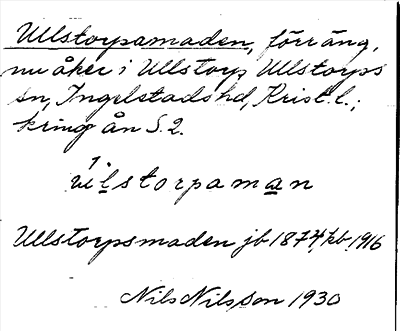 Ullstorpamaden, förr äng,
nu åker i Ullstorp Ullstorps
sn, Ingelstads hd, Krist. l.;
kring ån S. 2.
ulstorpaman
Ullstorpsmaden jb 1874, kb 1916
Nils Nilsson 1930